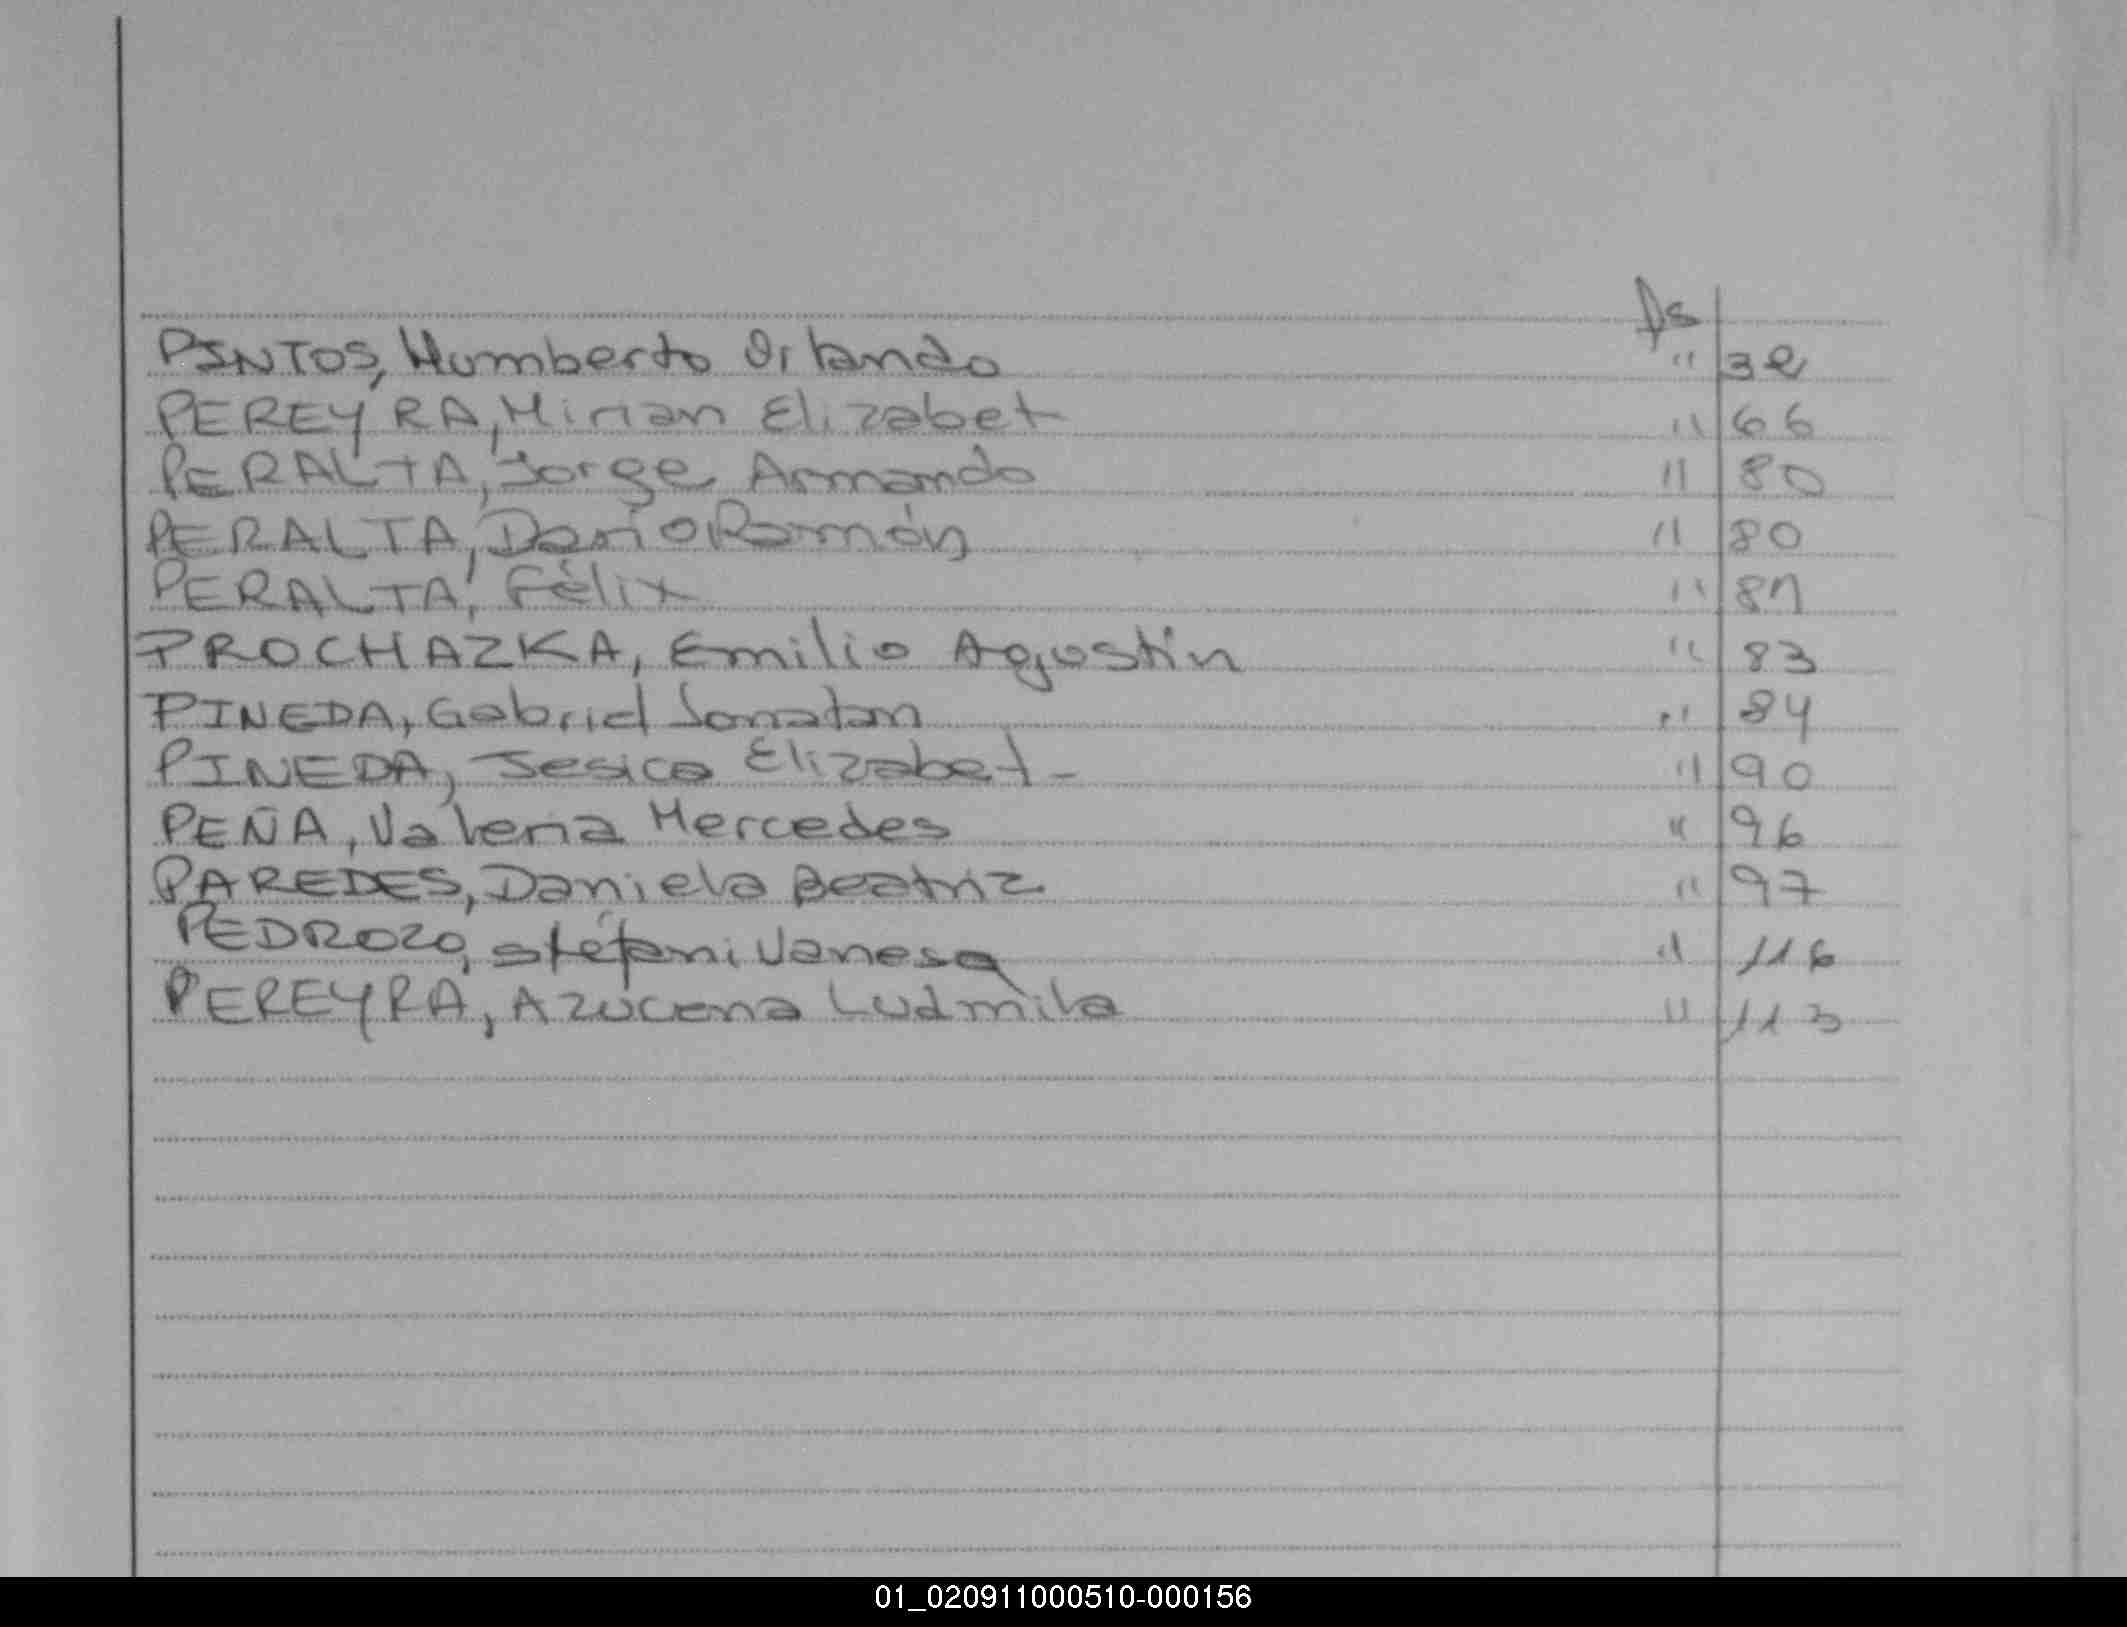 fs
PINTOS, Humberto Orlando " 32
PEREYRA, Mirian Elizabet " 66
PERALTA, Jorge Armando " 80
PERALTA, Dario Román " 80
PERALTA, Félix " 81
PROCHAZKA, Emilio Agustín " 83
PINEDA, Gabriel Jonatan " 84
PINEDA, Jesica Elizabet - " 90
PEÑA, Valeria Mercedes " 96
PAREDES, Daniela Beatriz " 97
PEDROZO, stéfani Vanesa " 116
PEREYRA, Azucena Ludmila " 113
01_020911000510-000156